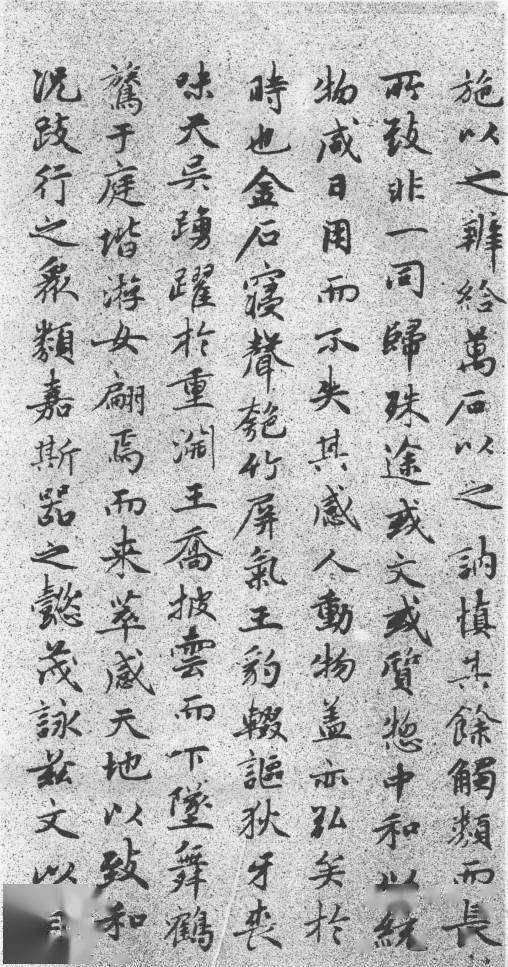 施以之辨給萬石以之訥慎其餘觸類而長
所致非一同歸殊途或文或質惣中和以統
物咸日用而不失其感人動物盖亦弘矣於
時也金石寑聲匏竹屏氣王豹輟謳狄牙喪
味天吳踴躍於重淵王喬披雲而下墜舞鶴
鶩于庭堦游女飄焉而来萃感天地以致和
況跂行之衆類嘉斯器之懿茂詠茲文以